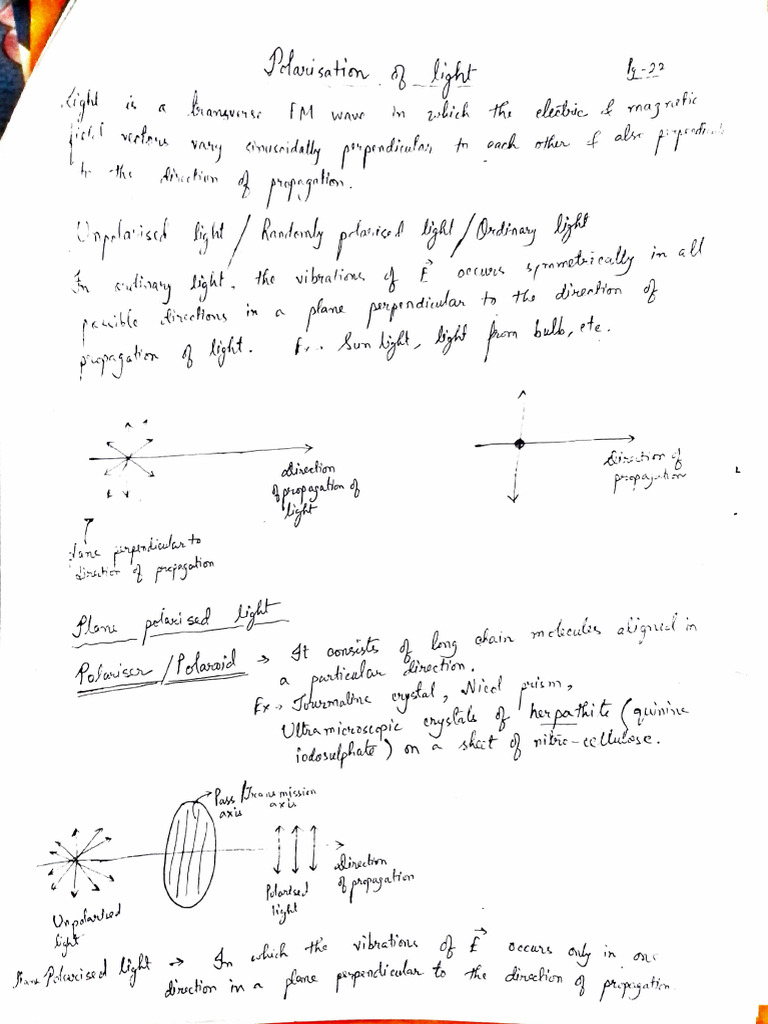 Polarisation of light
Pg-22
Light is a transverse EM wave in which the electric & magnetic
field vectors vary sinusoidally perpendicular to each other & also perpendicular
to the direction of propagation.
Unpolarised light / Randomly polarised light / Ordinary light
In ordinary light, the vibrations of E occurs symmetrically in all
possible directions in a plane perpendicular to the direction of
propagation of light. Ex. Sun light, light from bulb, etc.
direction
of propagation of
light
direction of
propagation
Plane perpendicular to
direction of propagation
Plane polarised light
Polariser / Polaroid → It consists of long chain molecules aligned in
a particular direction.
Ex → Tourmaline crystal, Nicol prism,
Ultramicroscopic crystals of herpathite (quinine
iodosulphate) on a sheet of nitro-cellulose.
Pass / Transmission
axis axis
Direction
of propagation
Polarised
light
Unpolarised
light
Plane Polarised light → In which the vibrations of E occurs only in one
direction in a plane perpendicular to the direction of propagation.